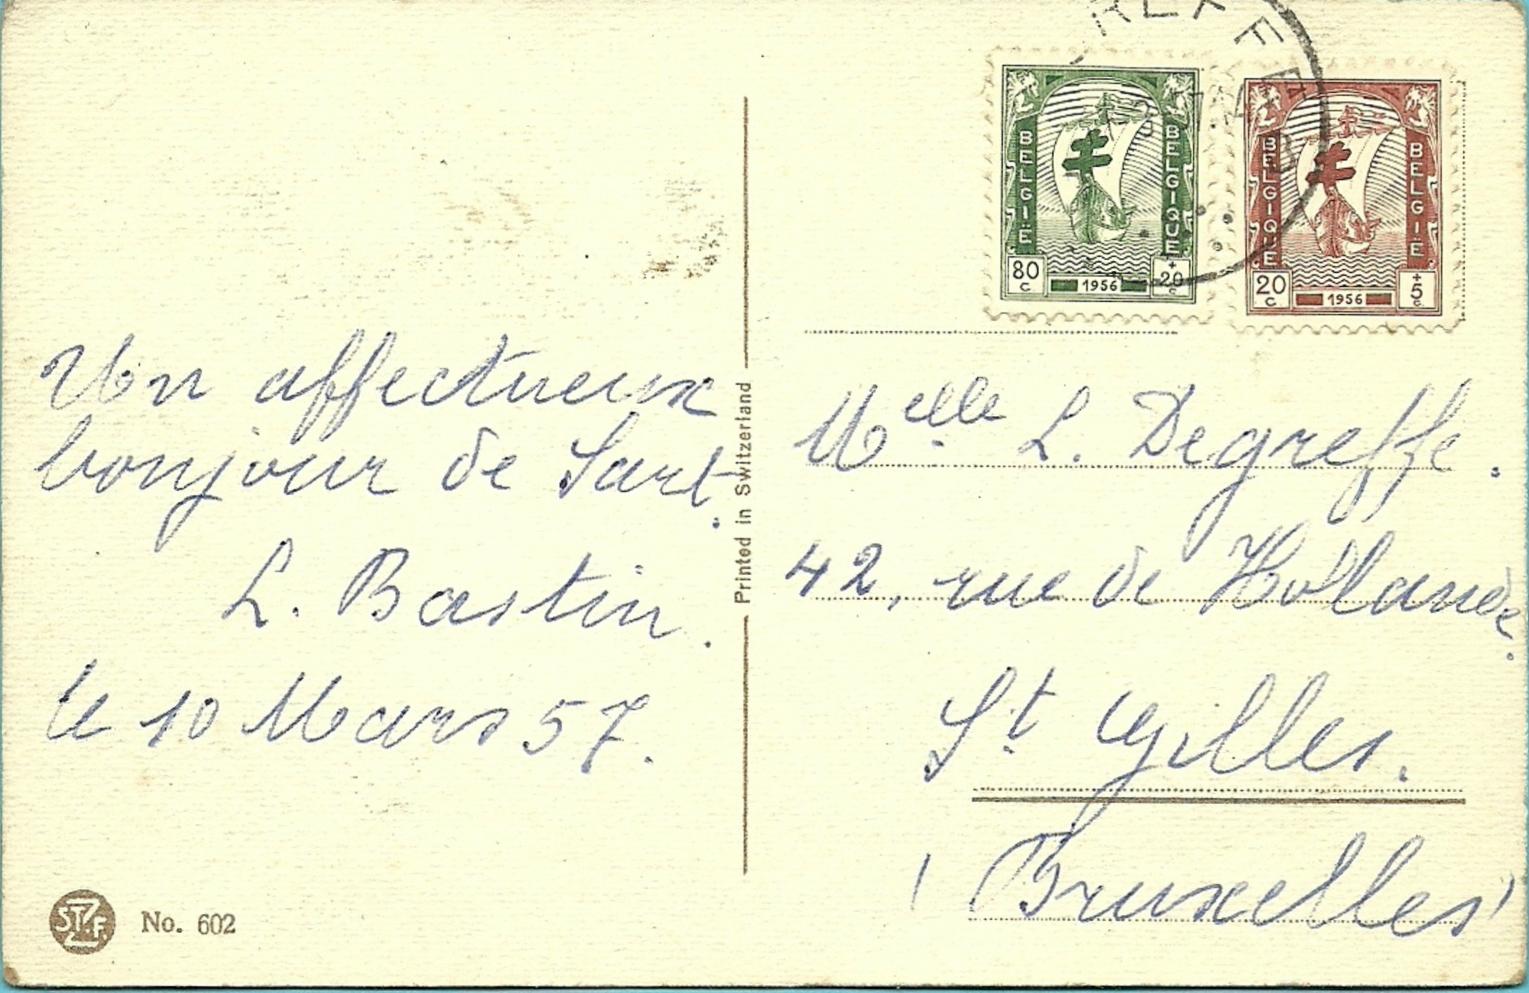 Un affectueux
bonjour de Sart.
L. Bastin.
le 10 Mars 57.
STZF.
No. 602
Printed in Switzerland
BELGIË
BELGIQUE
80 c
1956
+20 c
BELGIQUE
BELGIË
20 c
1956
+5 c
Melle L. Degreffe.
42, rue de Hollande.
St Gilles.
(Bruxelles)